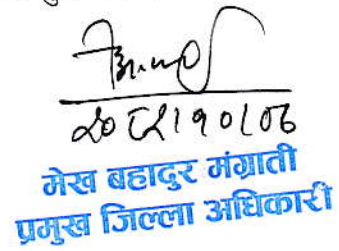 २०८२।१०।०६
मेख बहादुर मंग्राती
प्रमुख जिल्ला अधिकारी